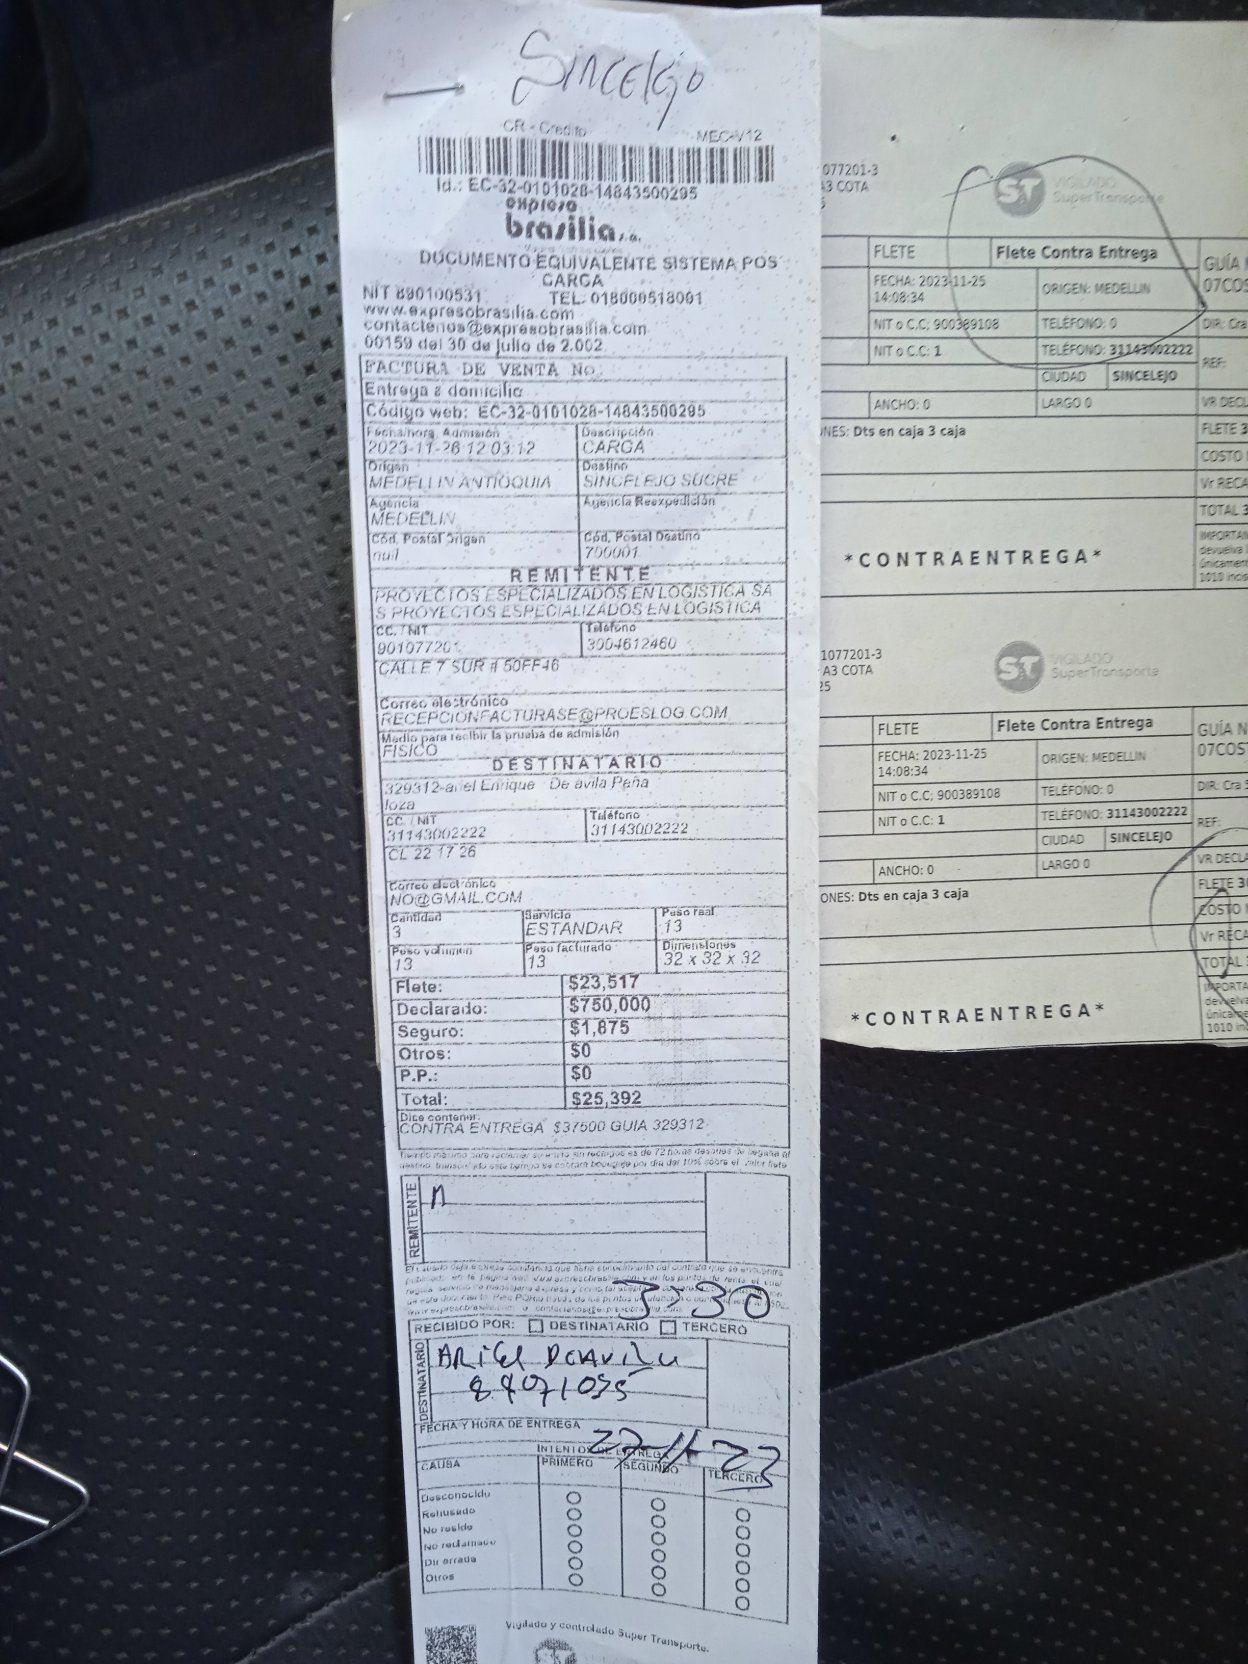 Sincelejo
CR - Credito MEC-V12
Id.: EC-32-0101028-14843500295
expreso
brasilia s.a.
DOCUMENTO EQUIVALENTE SISTEMA POS
CARGA
NIT 890100531 TEL: 018000518001
www.expresobrasilia.com
contactenos@expresobrasilia.com
00159 del 30 de julio de 2.002
FACTURA DE VENTA No.
Entrega a domicilio
Código web: EC-32-0101028-14843500295
Fecha/hora Admisión Descripción
2023-11-26 12:03:12 CARGA
Origen Destino
MEDELLIN ANTIOQUIA SINCELEJO SUCRE
Agencia Agencia Reexpedición
MEDELLIN
Cód. Postal Origen Cód. Postal Destino
null 700001
REMITENTE
PROYECTOS ESPECIALIZADOS EN LOGISTICA SA
S PROYECTOS ESPECIALIZADOS EN LOGISTICA
CC. / NIT Teléfono
901077201 3004612460
CALLE 7 SUR # 50FF46
Correo electrónico
RECEPCIONFACTURASE@PROESLOG.COM
Medio para recibir la prueba de admisión
FISICO
DESTINATARIO
329312-ariel Enrique De avila Peña
loza
CC. / NIT Teléfono
31143002222 31143002222
CL 22 17 26
Correo electrónico
NO@GMAIL.COM
Cantidad Servicio Peso real
3 ESTANDAR 13
Peso volumen Peso facturado Dimensiones
13 13 32 x 32 x 32
Flete: $23,517
Declarado: $750,000
Seguro: $1,875
Otros: $0
P.P.: $0
Total: $25,392
Dice contener:
CONTRA ENTREGA $37500 GUIA 329312
REMITENTE
n
3:30
RECIBIDO POR: DESTINATARIO TERCERO
DESTINATARIO
ARiel DeAvila
FECHA Y HORA DE ENTREGA
27-11-23
INTENTOS DE ENTREGA
CAUSA PRIMERO SEGUNDO TERCERO
Desconocido
Rehusado
No reside
No reclamado
Dir errada
Otros
Vigilado y controlado Super Transporte.
077201-3
A3 COTA
ST VIGILADO
SuperTransporte
FLETE Flete Contra Entrega GUÍA
FECHA: 2023-11-25
14:08:34
ORIGEN: MEDELLIN 07COS
NIT o C.C; 900389108 TELÉFONO: 0 DIR: Cra
NIT o C.C: 1 TELÉFONO: 31143002222 REF:
CIUDAD SINCELEJO
ANCHO: 0 LARGO 0 VR DECL
NES: Dts en caja 3 caja FLETE 3
COSTO
Vr RECA
TOTAL 3
*CONTRAENTREGA*
IMPORTAN
devuelva
únicament
1010 incis
1077201-3
A3 COTA
25
ST VIGILADO
SuperTransporte
FLETE Flete Contra Entrega GUÍA N
FECHA: 2023-11-25
14:08:34
ORIGEN: MEDELLIN 07COST
NIT o C.C; 900389108 TELÉFONO: 0 DIR: Cra
NIT o C.C: 1 TELÉFONO: 31143002222 REF:
CIUDAD SINCELEJO
ANCHO: 0 LARGO 0 VR DECLA
ONES: Dts en caja 3 caja FLETE
COSTO
Vr RECA
TOTAL
*CONTRAENTREGA*
IMPORTA
devuelva
únicame
1010 inc